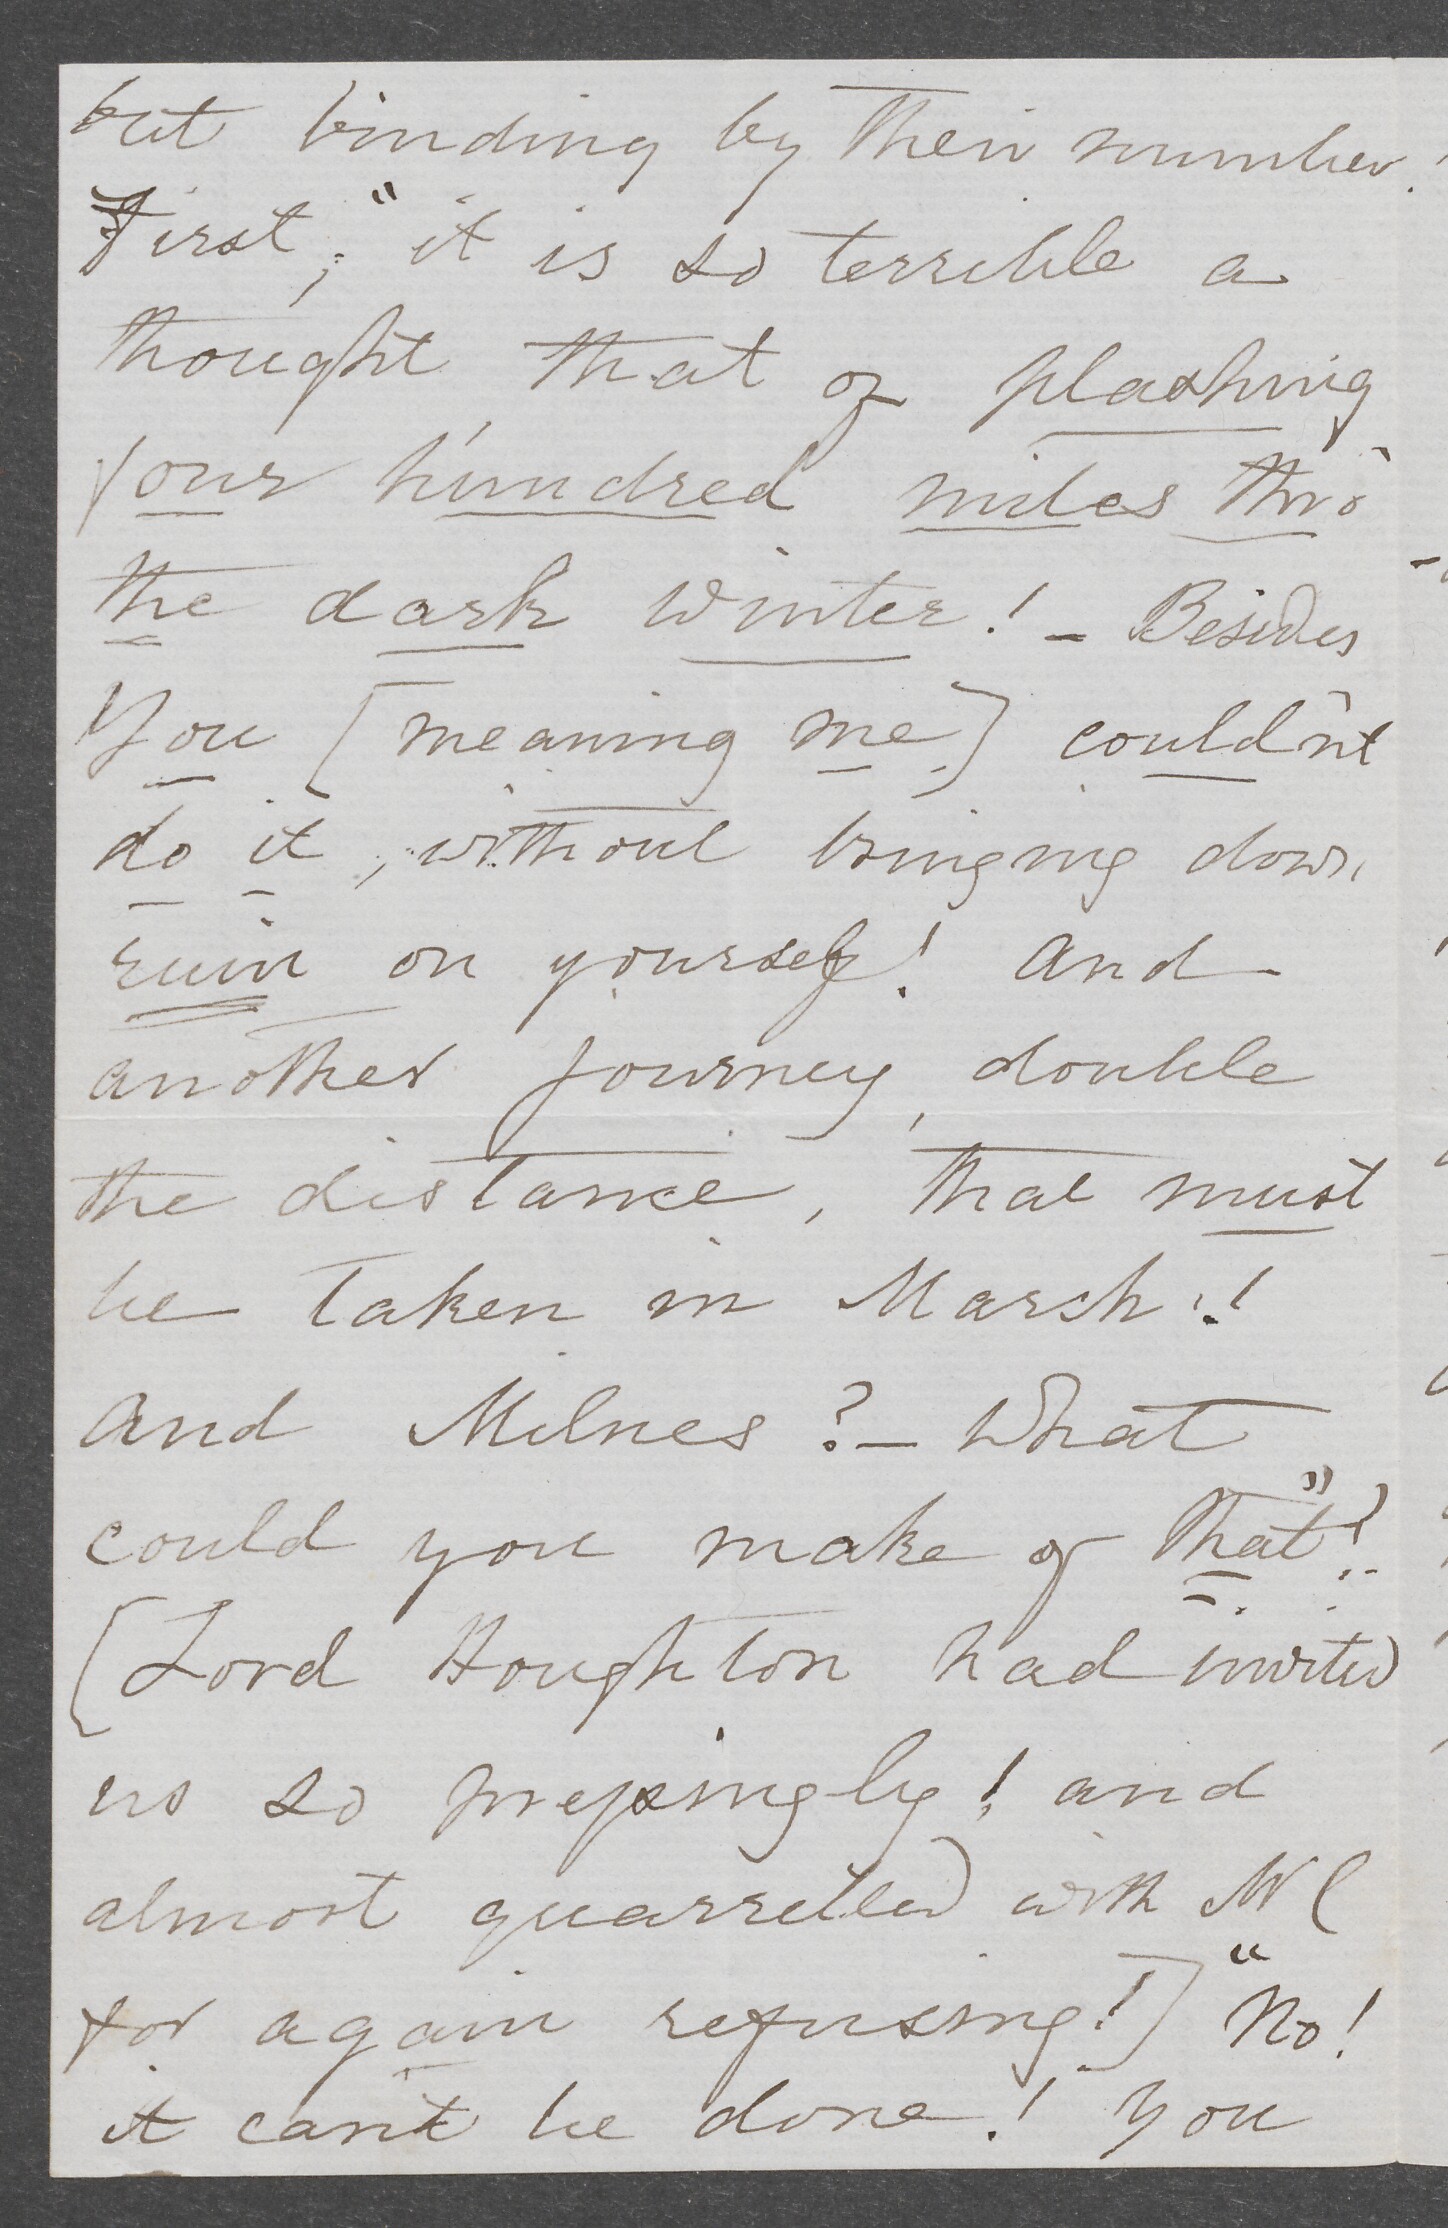 but binding by their number.
First, "it is so terrible a
thought that of plashing
four hundred miles thro'
the dark winter! – Besides
You [meaning me] could'nt
do it, without bringing down
ruin on yourself! And
another journey, double
the distance, that must
be taken in March!!
And Milnes? – What
could you make of that"?
[Lord Houghton had invited
us so pressingly! and
almost quarrelled with Mr C
for again refusing!] "No!
it can't be done! You